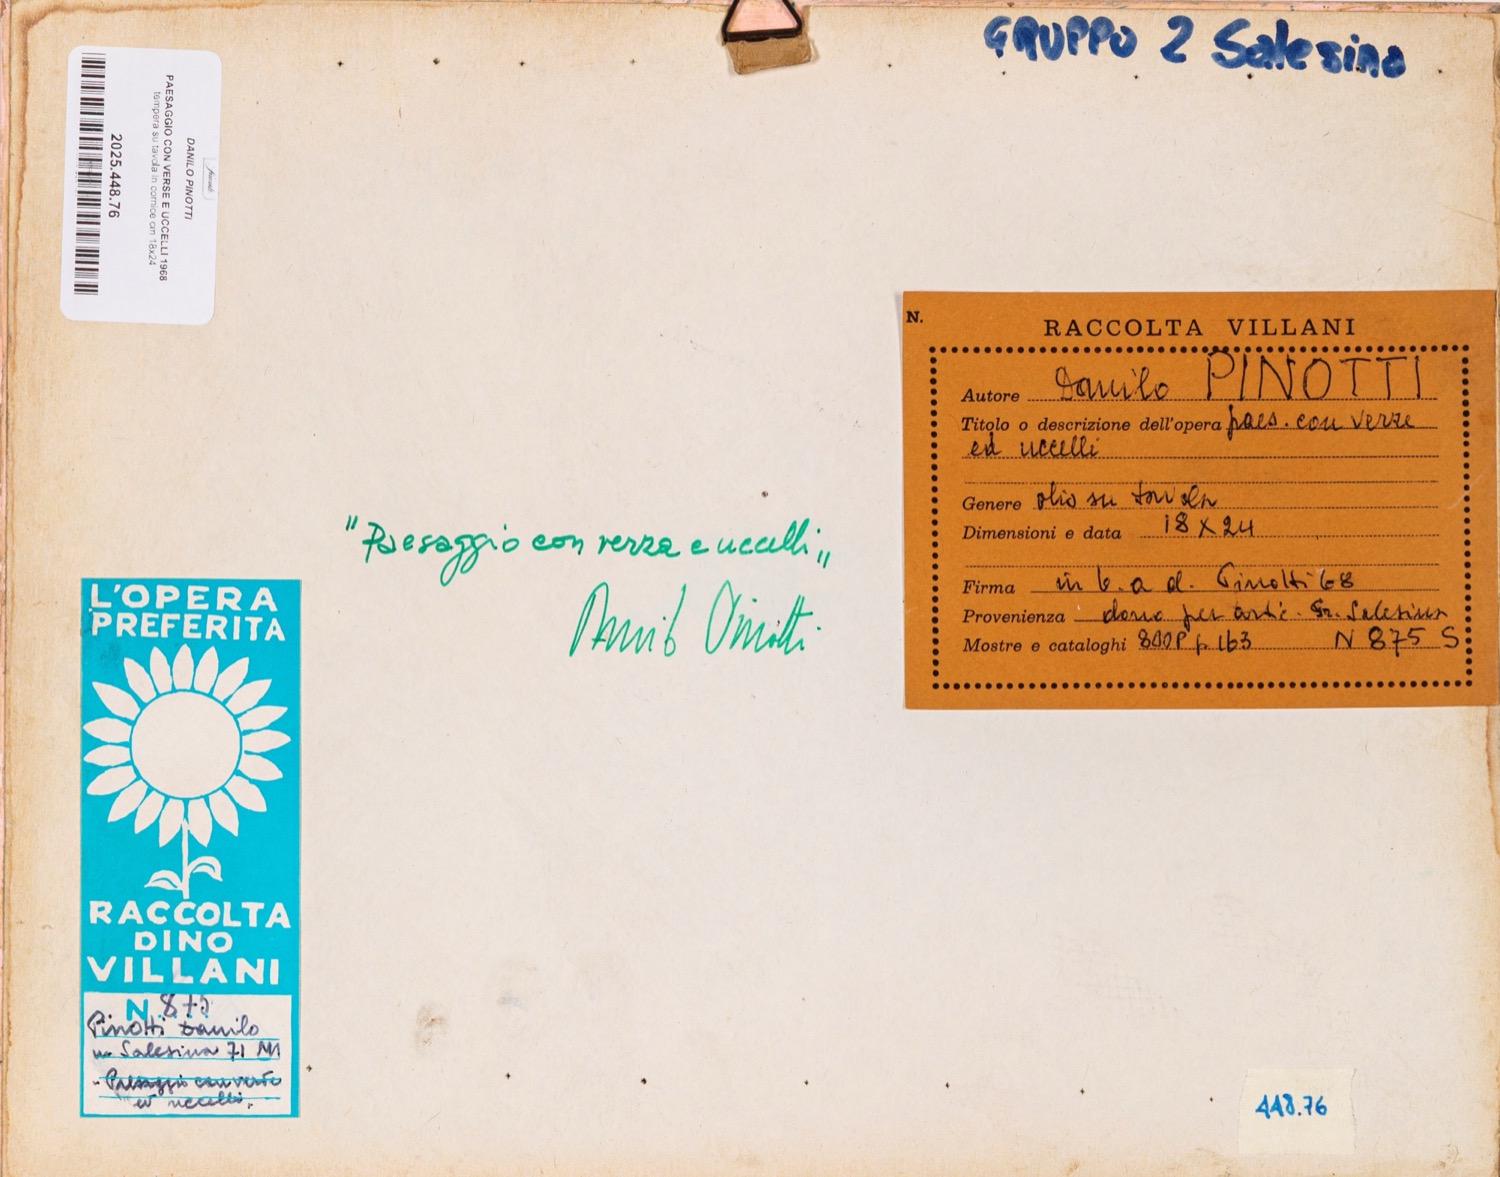 GRUPPO 2 Salesino
DANILO PINOTTI
PAESAGGIO CON VERSE E UCCELLI 1968
tempera su tavola in cornice cm 18x24
2025.448.76
N.
RACCOLTA VILLANI
Autore Danilo PINOTTI
Titolo o descrizione dell'opera paes. con verze
ed uccelli
Genere olio su tavola
Dimensioni e data 18 X 24
Firma in b. a d. Pinotti 68
Provenienza dono per
Mostre e cataloghi p 163 N 875 S
"Paesaggio con verza e uccelli"
Danilo Pinotti
L'OPERA
PREFERITA
RACCOLTA
DINO
VILLANI
N. 875
Pinotti Danilo
Salesina 71 MI
Paesaggio con verze
ed uccelli.
448.76